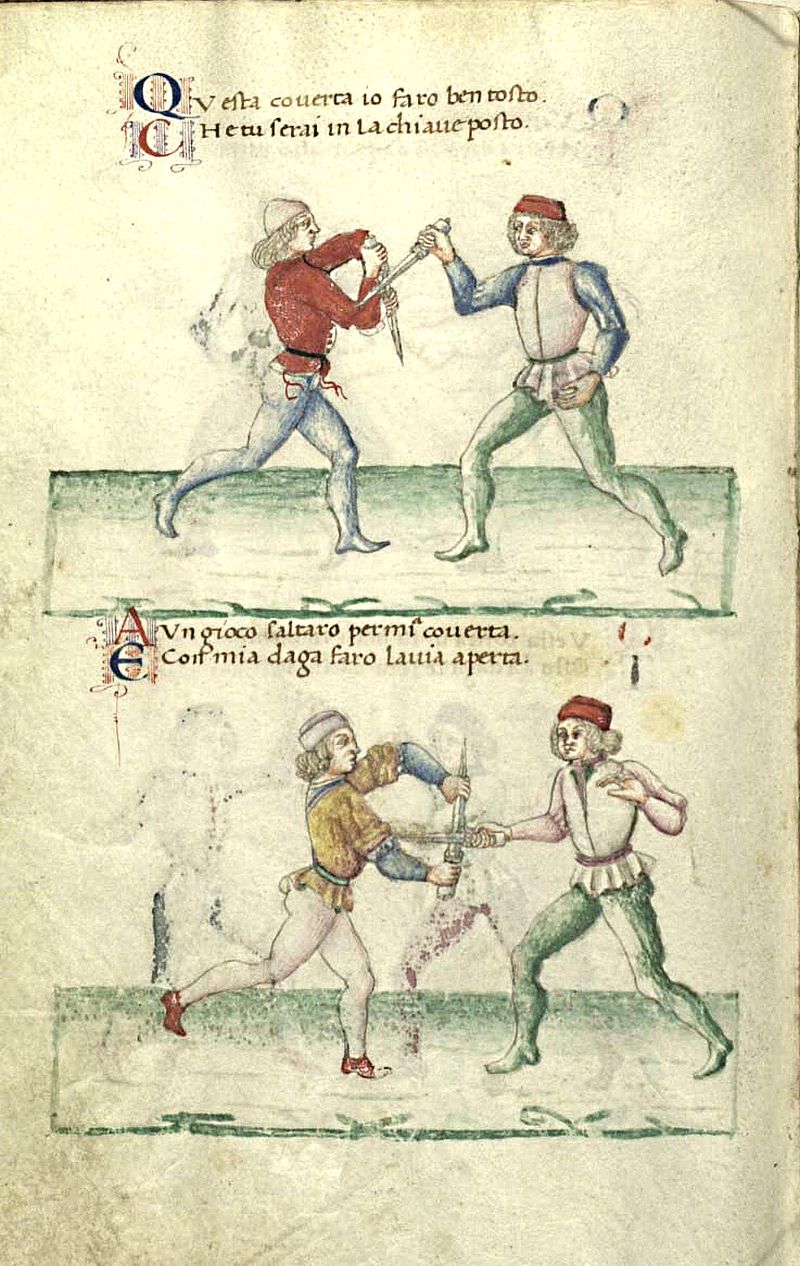 QVesta couerta io faro ben tosto.
CHe tu serai in la chiaue posto.
AVn gioco saltaro per mia couerta.
E Con mia daga faro la uia aperta.